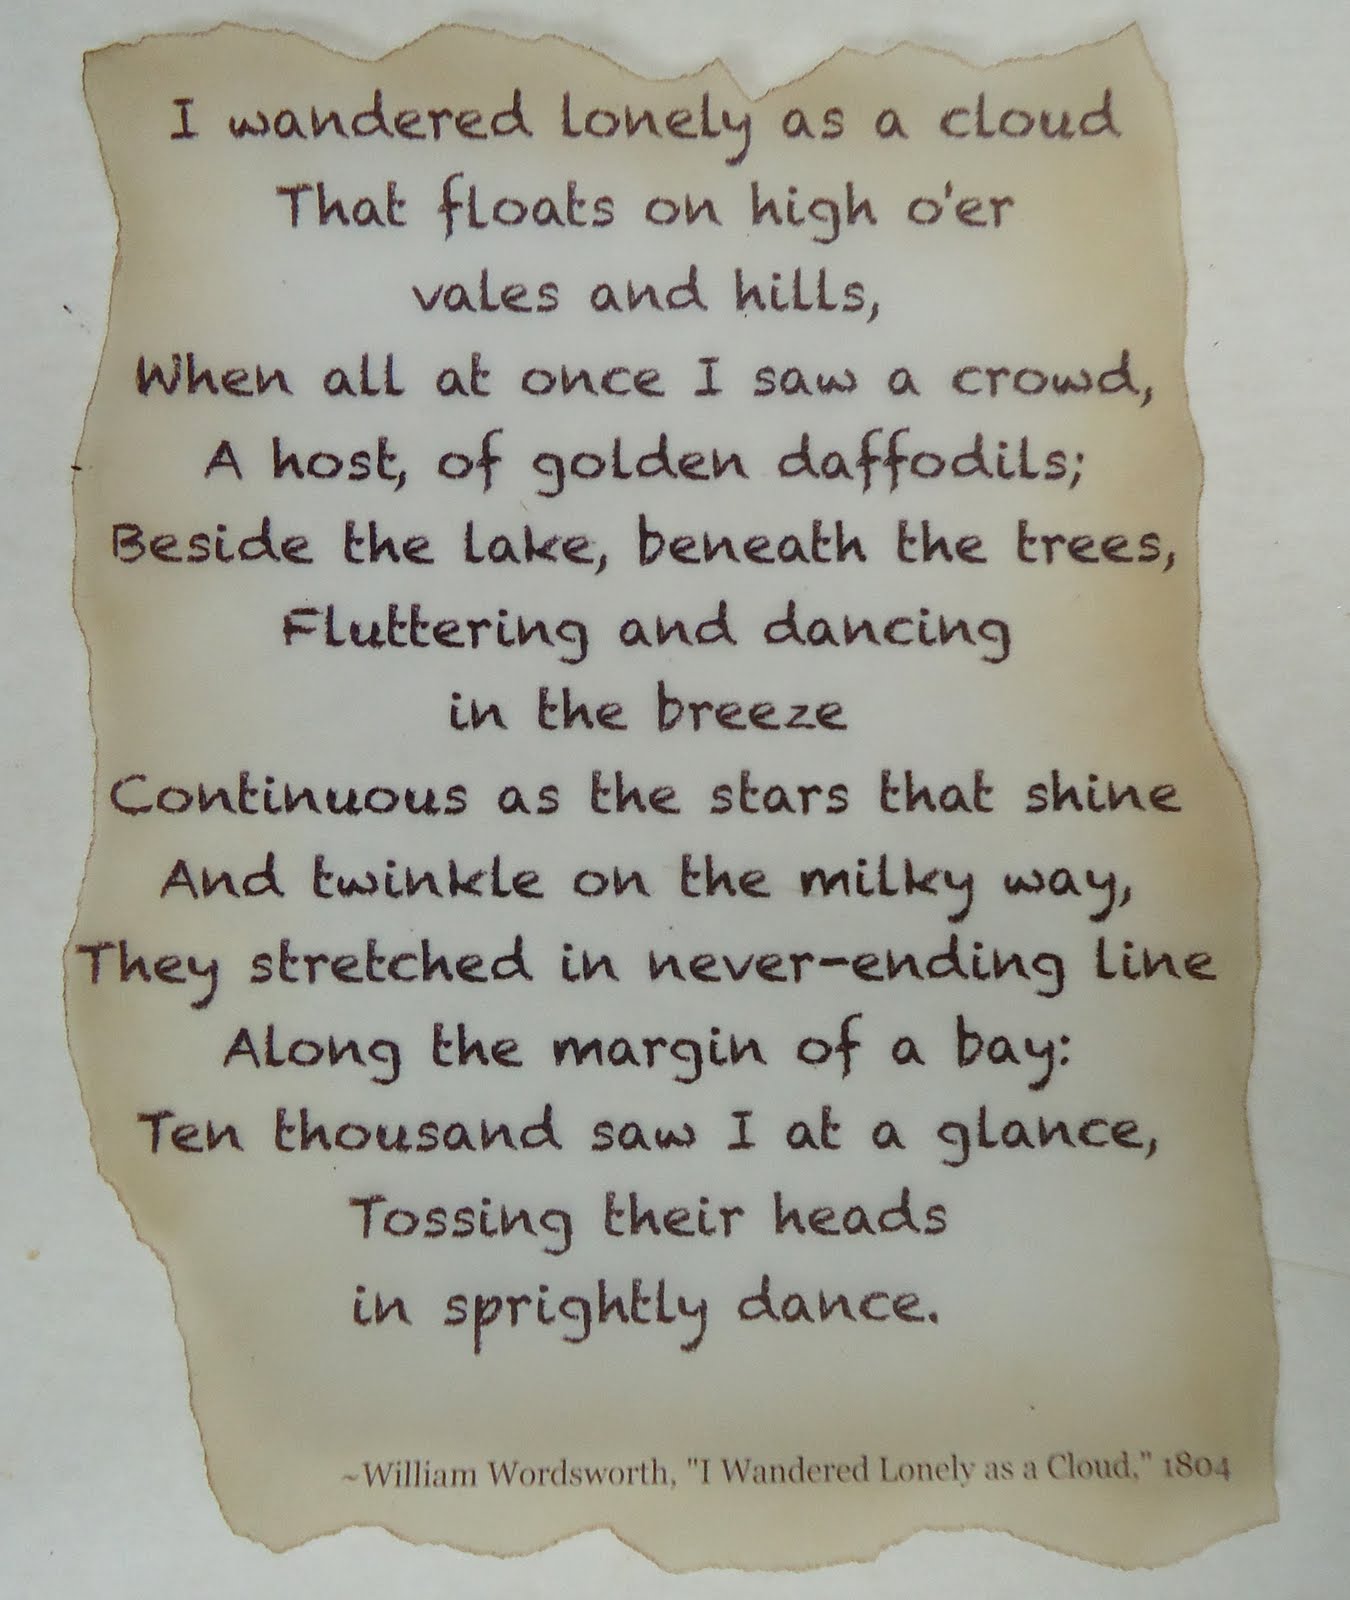 I wandered lonely as a cloud
That floats on high o'er
vales and hills,
When all at once I saw a crowd,
A host, of golden daffodils;
Beside the lake, beneath the trees,
Fluttering and dancing
in the breeze
Continuous as the stars that shine
And twinkle on the milky way,
They stretched in never-ending line
Along the margin of a bay:
Ten thousand saw I at a glance,
Tossing their heads
in sprightly dance.
~William Wordsworth, "I Wandered Lonely as a Cloud," 1804